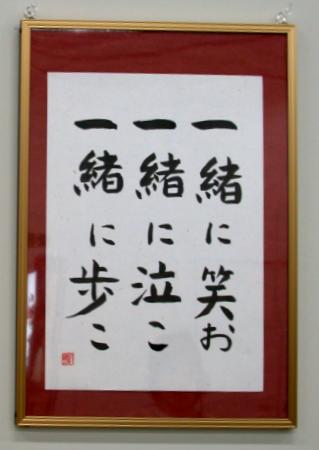 一緒に笑お
一緒に泣こ
一緒に歩こ